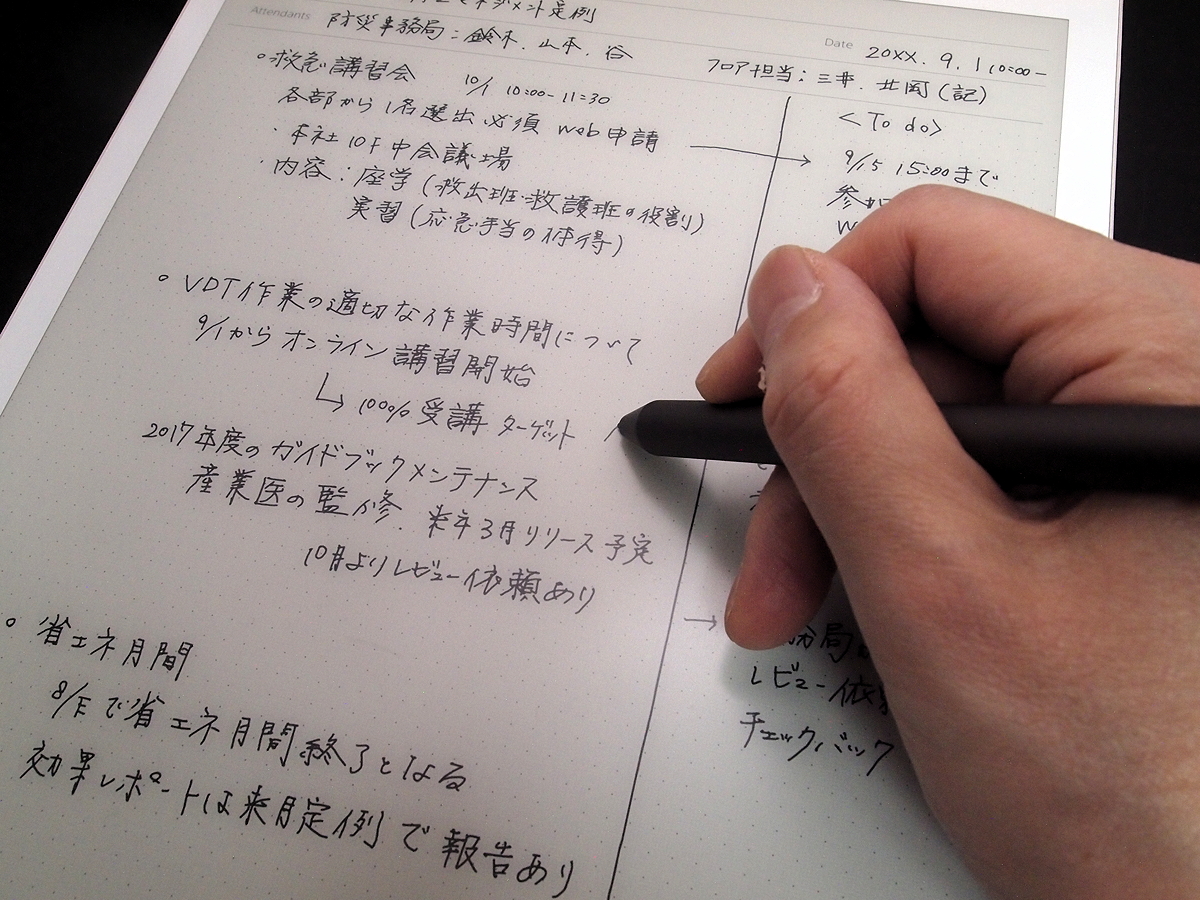 マネジメント定例
Attendants 防災事務局：鈴木、山本、谷
Date 20XX. 9. 1 10:00-
フロア担当：三井、北岡(記)
◦救急講習会 10/1 10:00-11:30
各部から1名選出必須 Web申請
・本社10F中会議場
・内容：座学(救出班・救護班の役割)
実習(応急手当の体得)
◦VDT作業の適切な作業時間について
9/1からオンライン講習開始
↳100%受講 ターゲット
2017年度のガイドブックメンテナンス
産業医の監修、来年3月リリース予定
10月よりレビュー依頼あり
◦省エネ月間
8/Eで省エネ月間終了となる
効果レポートは来月定例で報告あり
<To do>
→ 9/15 15:00まで
参加
W
→
務局
レビュー依頼
チェックバック